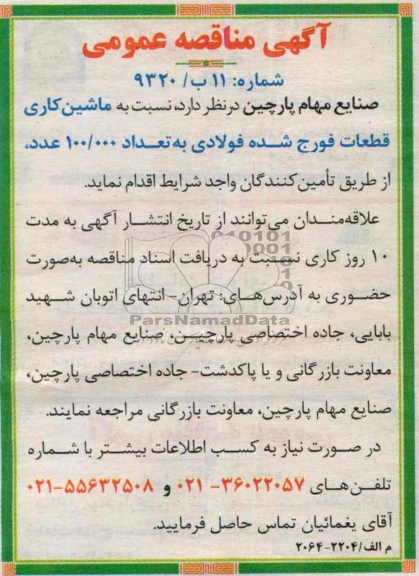 آگهی مناقصه عمومی
شماره: ۱۱ ب/ ۹۳۲۰
صنایع مهام پارچین درنظر دارد، نسبت به ماشین‌کاری
قطعات فورج شده فولادی به‌تعداد ۱۰۰/۰۰۰ عدد،
از طریق تأمین‌کنندگان واجد شرایط اقدام نماید.
علاقه‌مندان می‌توانند از تاریخ انتشار آگهی به مدت
۱۰ روز کاری نسبت به دریافت اسناد مناقصه به‌صورت
حضوری به آدرس‌های: تهران- انتهای اتوبان شهید
ParsNamadData
بابایی، جاده اختصاصی پارچین، صنایع مهام پارچین،
معاونت بازرگانی و یا پاکدشت- جاده اختصاصی پارچین،
صنایع مهام پارچین، معاونت بازرگانی مراجعه نمایند.
در صورت نیاز به کسب اطلاعات بیشتر با شماره
تلفن‌های ۳۶۰۲۲۰۵۷- ۰۲۱ و ۵۵۶۳۲۵۰۸-۰۲۱
آقای یغمائیان تماس حاصل فرمایید.
م الف/۲۲۰۴-۲۰۶۴